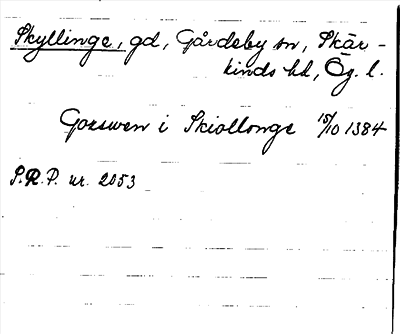 Skyllinge, gd, Gårdeby sn, Skär-
kinds hd, Ög. l.
Goxswen i Skiollonge 15/10 1384
S.R.P. nr. 2053